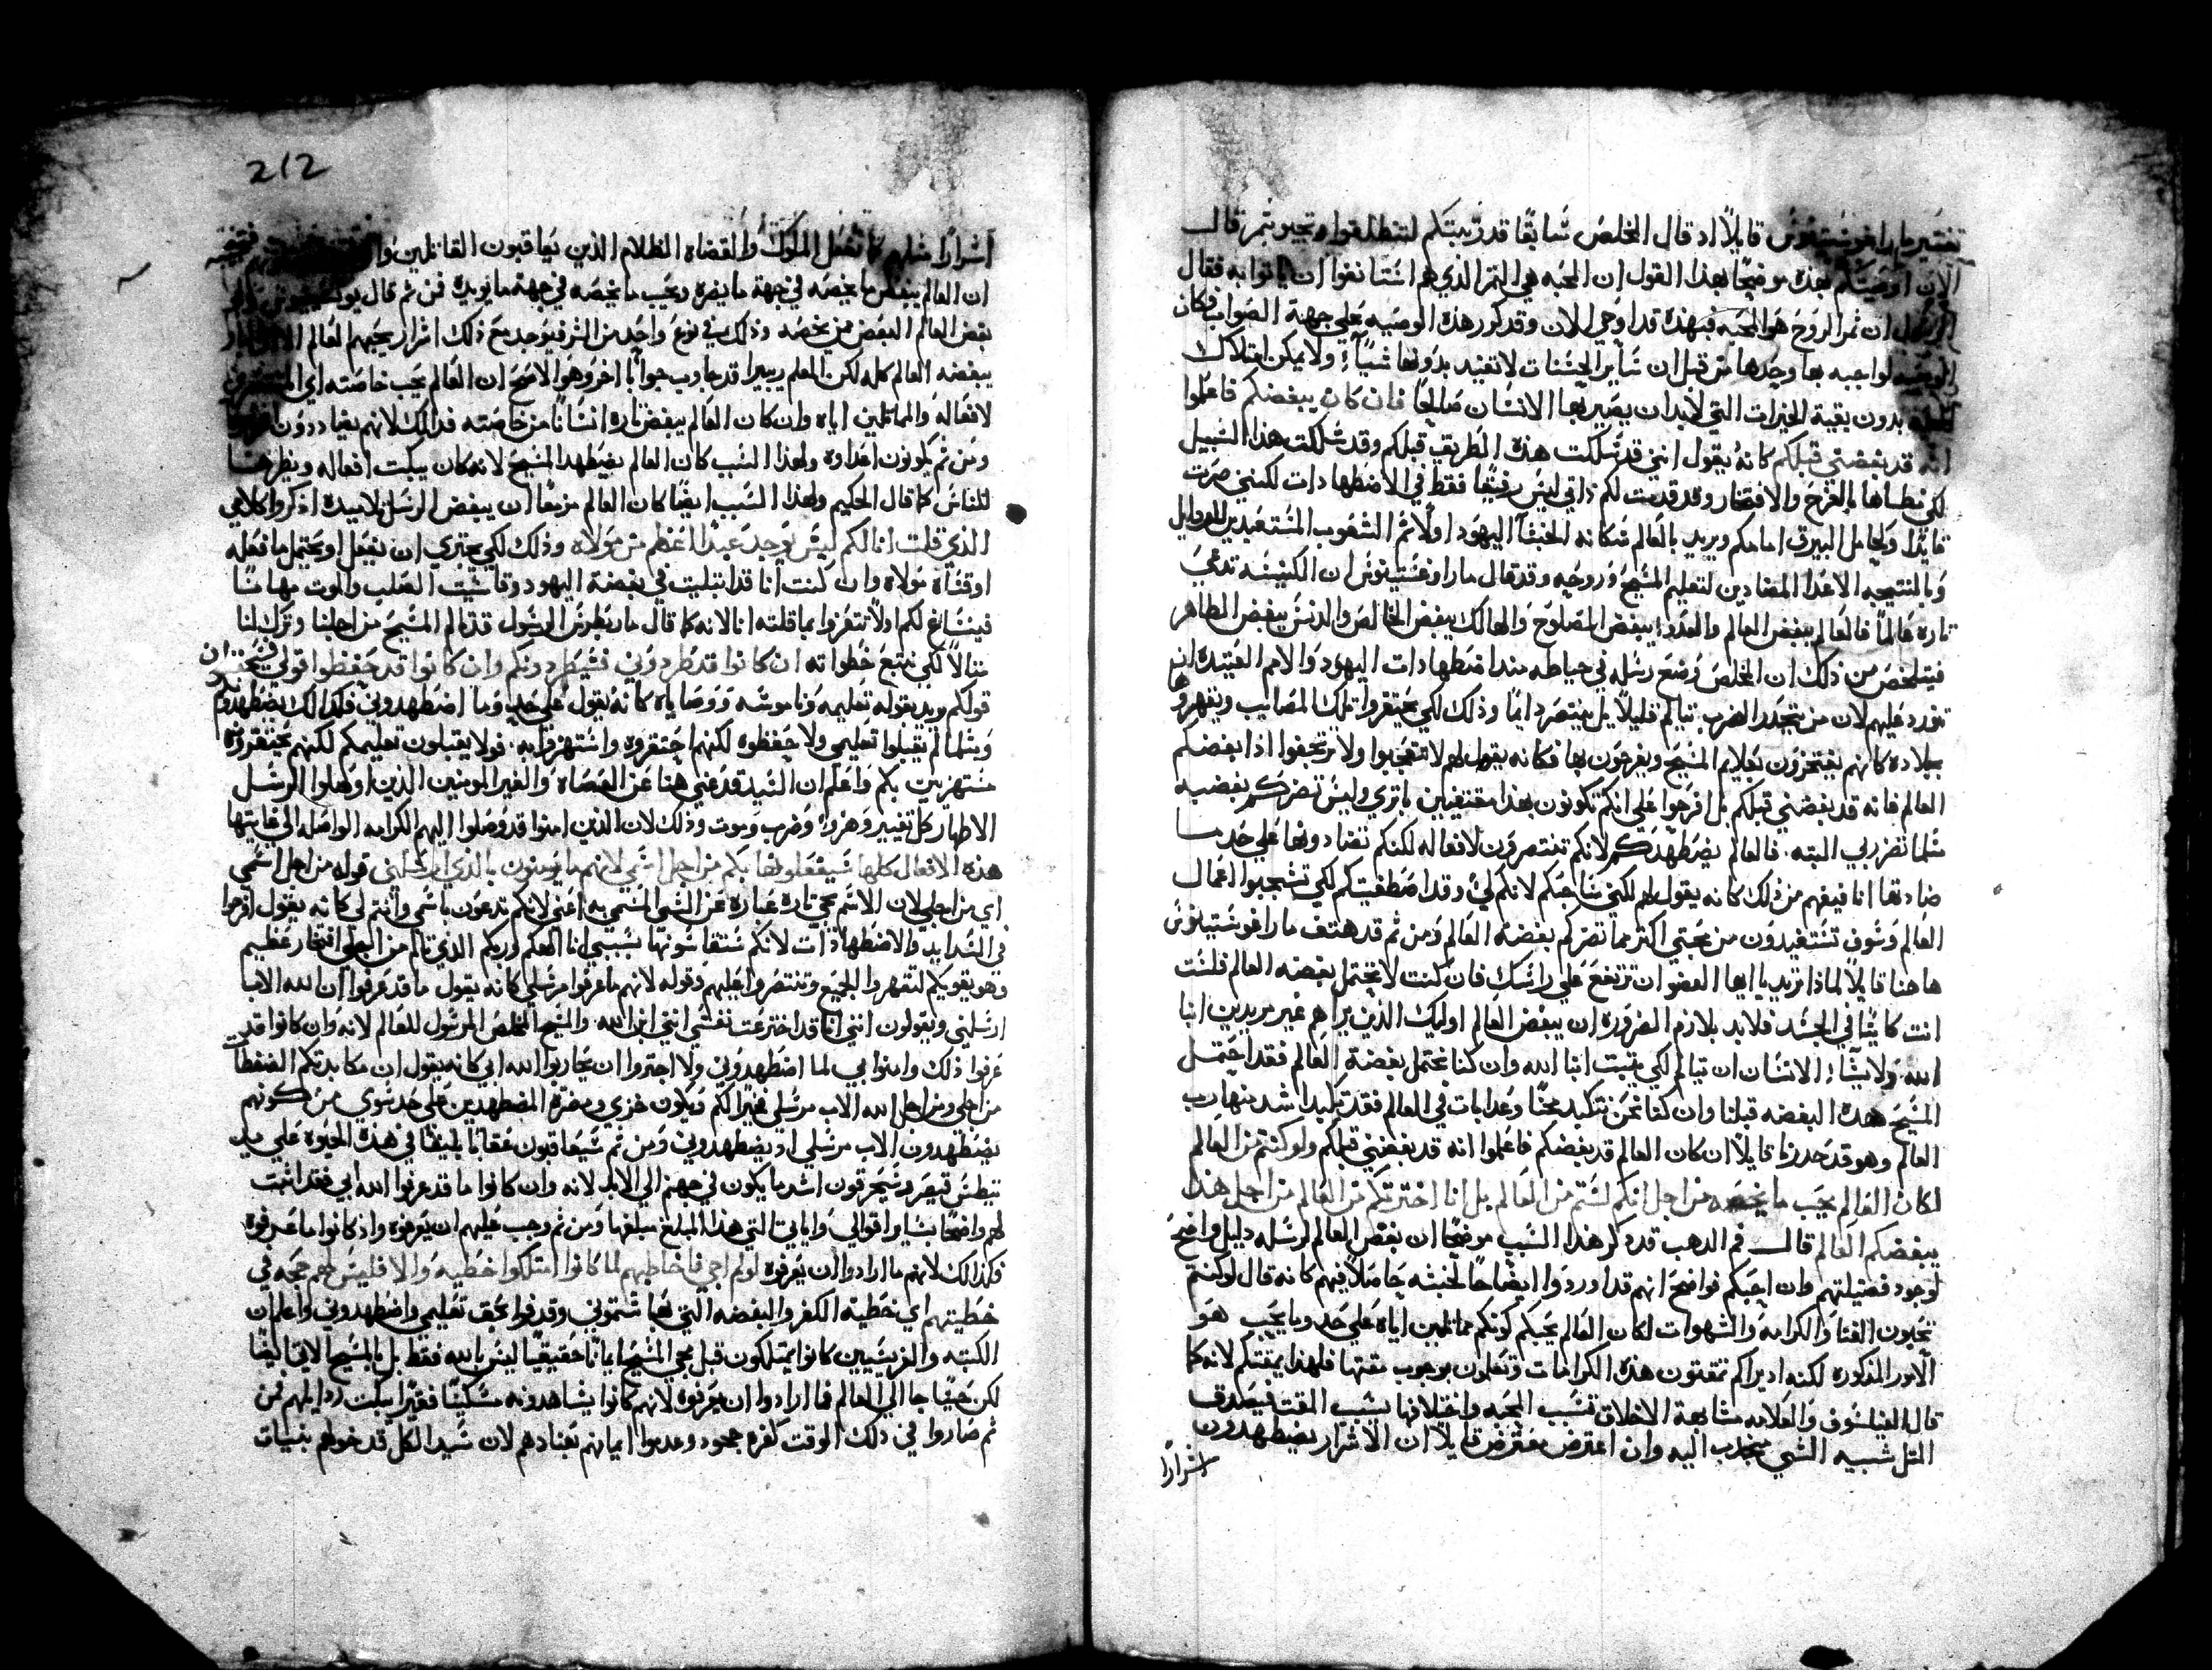 تفسير مار اغوستينوس قايلاً اد قال المخلص سابقًا قد رتبتكم لتنطلقوا وتجيبو بثمر قال
الان اوصيتكم بهذه موضحًا بهذا القول ان المحبه هي الثمر الذي هم استانفوا ان ياتوا به فقال
الرسول ان ثمر الروح هو المحبه فبهذه قد اوحي الان وقد كرر هذه الوصيه علي جهة الصواب فكان
الوصيه لواجبه بها وحدها من قبل ان ساير الحسنات لا تفيد بدونها شياءً ولا يمكن امتلاك
بدون بقية الخيرات التي لابد ان يصير بها الانسان صالحًا فان كان يبغضكم فاعلموا
انه قد بغضني قبلكم كانه يقول انني قد سلكت هذه الطريق قبلكم وقد سلكت هذا السبيل
لكي نطاها بالفرح والافتخار وقد قدمت لكم ذاتي ليس رفيقًا فقط في الاضطهادات لكنني صرت
قايدًا ولحامل البيرق امامكم ويريد بالعالم سكانه الخبثآ اليهود اولًا ثم الشعوب المستعبدين للردايل
وبالنتيجه الاعدا المضادين لتعليم المسيح وروحه وقد قال مار اوغستينوس ان الكنيسه تدعي
تاره عالمًا فالعالم يبغض العالم والعدو يبغض المصلوح والهالك يبغض الخالص والدنس يبغض الطاهر
فيتلخص من ذلك ان المخلص وضع رسله في حياطه ضد اضطهادات اليهود والامم العتيده ان
تورد عليهم لان من يتحدر الضرب يتالم قليلًا بل ينتصر دايمًا وذلك لكي يحتقروا تلك المصايب ويقهروها
بجلاده كانهم يفتخرون بعلايم المسيح ويفرحون بها فكانه يقول لهم لا تتعجبوا ولا ترتجفوا اذا بغضكم
العالم فانه قد بغضني قبلكم بل افرحوا علي انكم تكونون بهذا مقتفيين باثري وليس تضركم بغضيه
مثلما تضر بي البته. فالعالم يضطهدكم لانكم تنتصرون لافعاله لكنكم تضادونها علي حد ما
ضادتها انا فيفهم من ذلك كانه يقول لهم لكني ساحبكم لانكم لي وقد اصطفيتكم لكي تشجبوا اعمال
العالم وسوف تستفيدون من محبتي اكثر مما تضركم بغضه العالم ومن ثم قد هتف مار اغوستينوس
هاهنا قايلاً لماذا تريد يا ايها العضو ان ترتفع علي راسك فان كنت لا تحتمل بغضه العالم فلست
انت كاينًا في الجسد فلابد بلازم الضروره ان يبغض العالم اوليك الذين يراهم غير مريدين ابنا
الله. ولا يشآءُ الانسان ان يتالم لكي يثبت ابنا الله وان كنا نحتمل بغضة العالم فقد احتمل
المسيح هذه البغضه قبلنا وان كنا نحن نتكبد محنًا وعدابات في العالم فقد تكبد اشد منها رب
العالم وهو قد حدرنا قايلاً ان كان العالم قد بغضكم فاعلموا انه قد بغضني قبلكم ولو كنتم من العالم
لكان العالم يحب ما يخصه من اجل انكم لستم من العالم بل انا اخترتكم من العالم من اجل هذا
يبغضكم العالم قال فم الدهب قد ذكر هذا السبب موضحًا ان بغض العالم لرسله دليل واضح
لوجود فضيلتهم وان احبكم فواضح انهم قد اوردوا ايضًاحًا لخبثه حاصلاً فيهم كانه قال لو كنتم
تحبون الغنا والكرامه والشهوات لكان العالم يحبكم كونكم مماثلين اياه علي حد وما يحب هو
الامور المذكوره لكنه اذ يراكم تمقتون هذه الكرامات وتعلمون بوجوب مقتها فلهذا يمقتكم لانه كما
قال الفيلسوف والعلامه مشابهة الاخلاق تسبب المحبه واختلافها يسبب المقت فيصدق
المثل شبيه الشي منجدب اليه وان اعترض معترض قايلاً ان الاشرار يضطهدون
اشرارًا
212
اشرارًا مثلهم كما تفعل الملوك والقضاه الظلام الذين يعاقبون القاتلين
ان العالم يبغض ما يخصه في جهة ما يضره ويحب ما يخصه في جهة ما يريده فمن ثم قال
بغض العالم البعض من يخصه وذلك في نوع واحد من الشر فيوجد مع ذلك اشرار يحبهم العالم
يبغضه العالم كله لكن المعلم ريبيرا قد جاوب جوابًا اخر وهو الاصح ان العالم يحب خاصته اي
لافعاله والمماثلين اياه وان كان العالم يبغض تاره انسانًا من خاصته فدلك لانهم يضاددون
ومن ثم يكونون اعداوه ولهذا السبب كان العالم يضطهد المسيح لانه كان يبكت افعاله ويظهرها
للناس كما قال الحكيم ولهذا السبب ايضًا كان العالم مزمعًا ان يبغض الرسل تلاميده اذكروا كلامي
الذي قلت انا لكم ليس يوجد عبدًا اعظم من مولاه وذلك لكي يجتري ان يفعل او يحتمل ما فعله
او قساه مولاه وان كنت انا قد ابتليت في بغضة اليهود وقاسيت الصلب والموت مهانًا
فينساغ لكم اولًا تتعزوا بما قلته انا لانه كما قال مار بطرس الرسول قد تالم المسيح من اجلنا وترك لنا
مثالاً لكي نتبع خطواته ان كانوا قد طردوني فسيطردونكم وان كانوا قد حفظوا قولي فسيحفظون
قولكم يريد بقوله تعليمه وناموسه ووصاياه كانه يقول علي حد وما اضطهدوني فكدالك يضطهدونكم
ومثلما لم يقبلوا تعليمي ولا حفظوه لكنهم احتقروه واستهزوا به. فولا يقبلون تعليمكم لكنهم يحتقرونه
مستهزيين بكم واعلم ان السيد قد عني هنا عن العصاه والغير المومنين الذين اوصلوا الرسل
الاطهار كل تغيير وهزوءٍ وضرب وموت وذلك لان الذين امنوا قد وصلوا اليهم الكرامه الواصله الي غايتها
هذه الافعال كلها سيفعلونها بكم من اجل اسمي لانهم ما يومنون بالذي ارسلني قوله من اجل اسمي
اي من اجلي لان الاسم يجي تاره عباره عن الشي المسمي به اعني لانكم تدعون باسمي وانتم لي كانه يقول افرحوا
في الشدايد والاضطهادات لانكم ستقاسونها بسببي انا الهكم وربكم الذي تالم من اجلي افتخار عظيم
وهو يقويكم لتقهروا الجميع وتنتصروا عليهم وقوله لانهم ما عرفوا مرسلي كانه يقول ما قد عرفوا ان الله الاب
ارسلني ويقولون انني انا قد اخترعت نفسي انني ابن الله. والمسيح المخلص المرسول للعالم لانه وان كانوا قد
عرفوا ذلك وامنوا بي لما اضطهدوني ولا اجتروا ان يحاربوا الله ابي كانه يقول ان مكابدتكم الضغطات
من اجلي ومن اجل الله الاب مرسلي فخيرًا لكم ويكون خزي ومضرة المضطهدين علي حد سوي من كونهم
يضطهدون الاب مرسلي اد يضطهدوني ومن ثم سيعاقبون عقابًا بليغًا في هذه الحيوه علي يد
تيطس قيصر وسيحرقون اشد ما يكون في جهنم الي الابد لانه وان كانوا ما قد عرفوا الله ابي فقد اثبت
لهم واضحًا بساير اقوالي واياتي التي هذا المبلغ مبلغها ومن ثم وجب عليهم ان يعرفوه واذ كانوا ما عرفوه
فكذالك لانهم ما ارادوا ان يعرفوه لو لم اجي فاخاطبهم لما كانوا امتلكوا خطيه والا فليس لهم حجه في
خطيتهم اي خطية الكفر والبغضه التي بها شتموني وقدفوا بحق تعليمي واضطهدوني واعلم ان
الكتبه والفريسيين كانوا يمتلكون قبل مجي المسيح ايمانًا حقيقيًا ليس بالله فقط بل بالمسيح الاتي ايضًا
لكن حينما جا الي العالم فما ارادوا ان يعرفوه لانهم كانوا يشاهدونه مسكينًا فقيرًا يبكت ردايلهم فمن
ثم صاروا في ذلك الوقت كفره جحود وعدموا ايمانهم بعنادهم لان سيد الكل قد خولهم بنيات